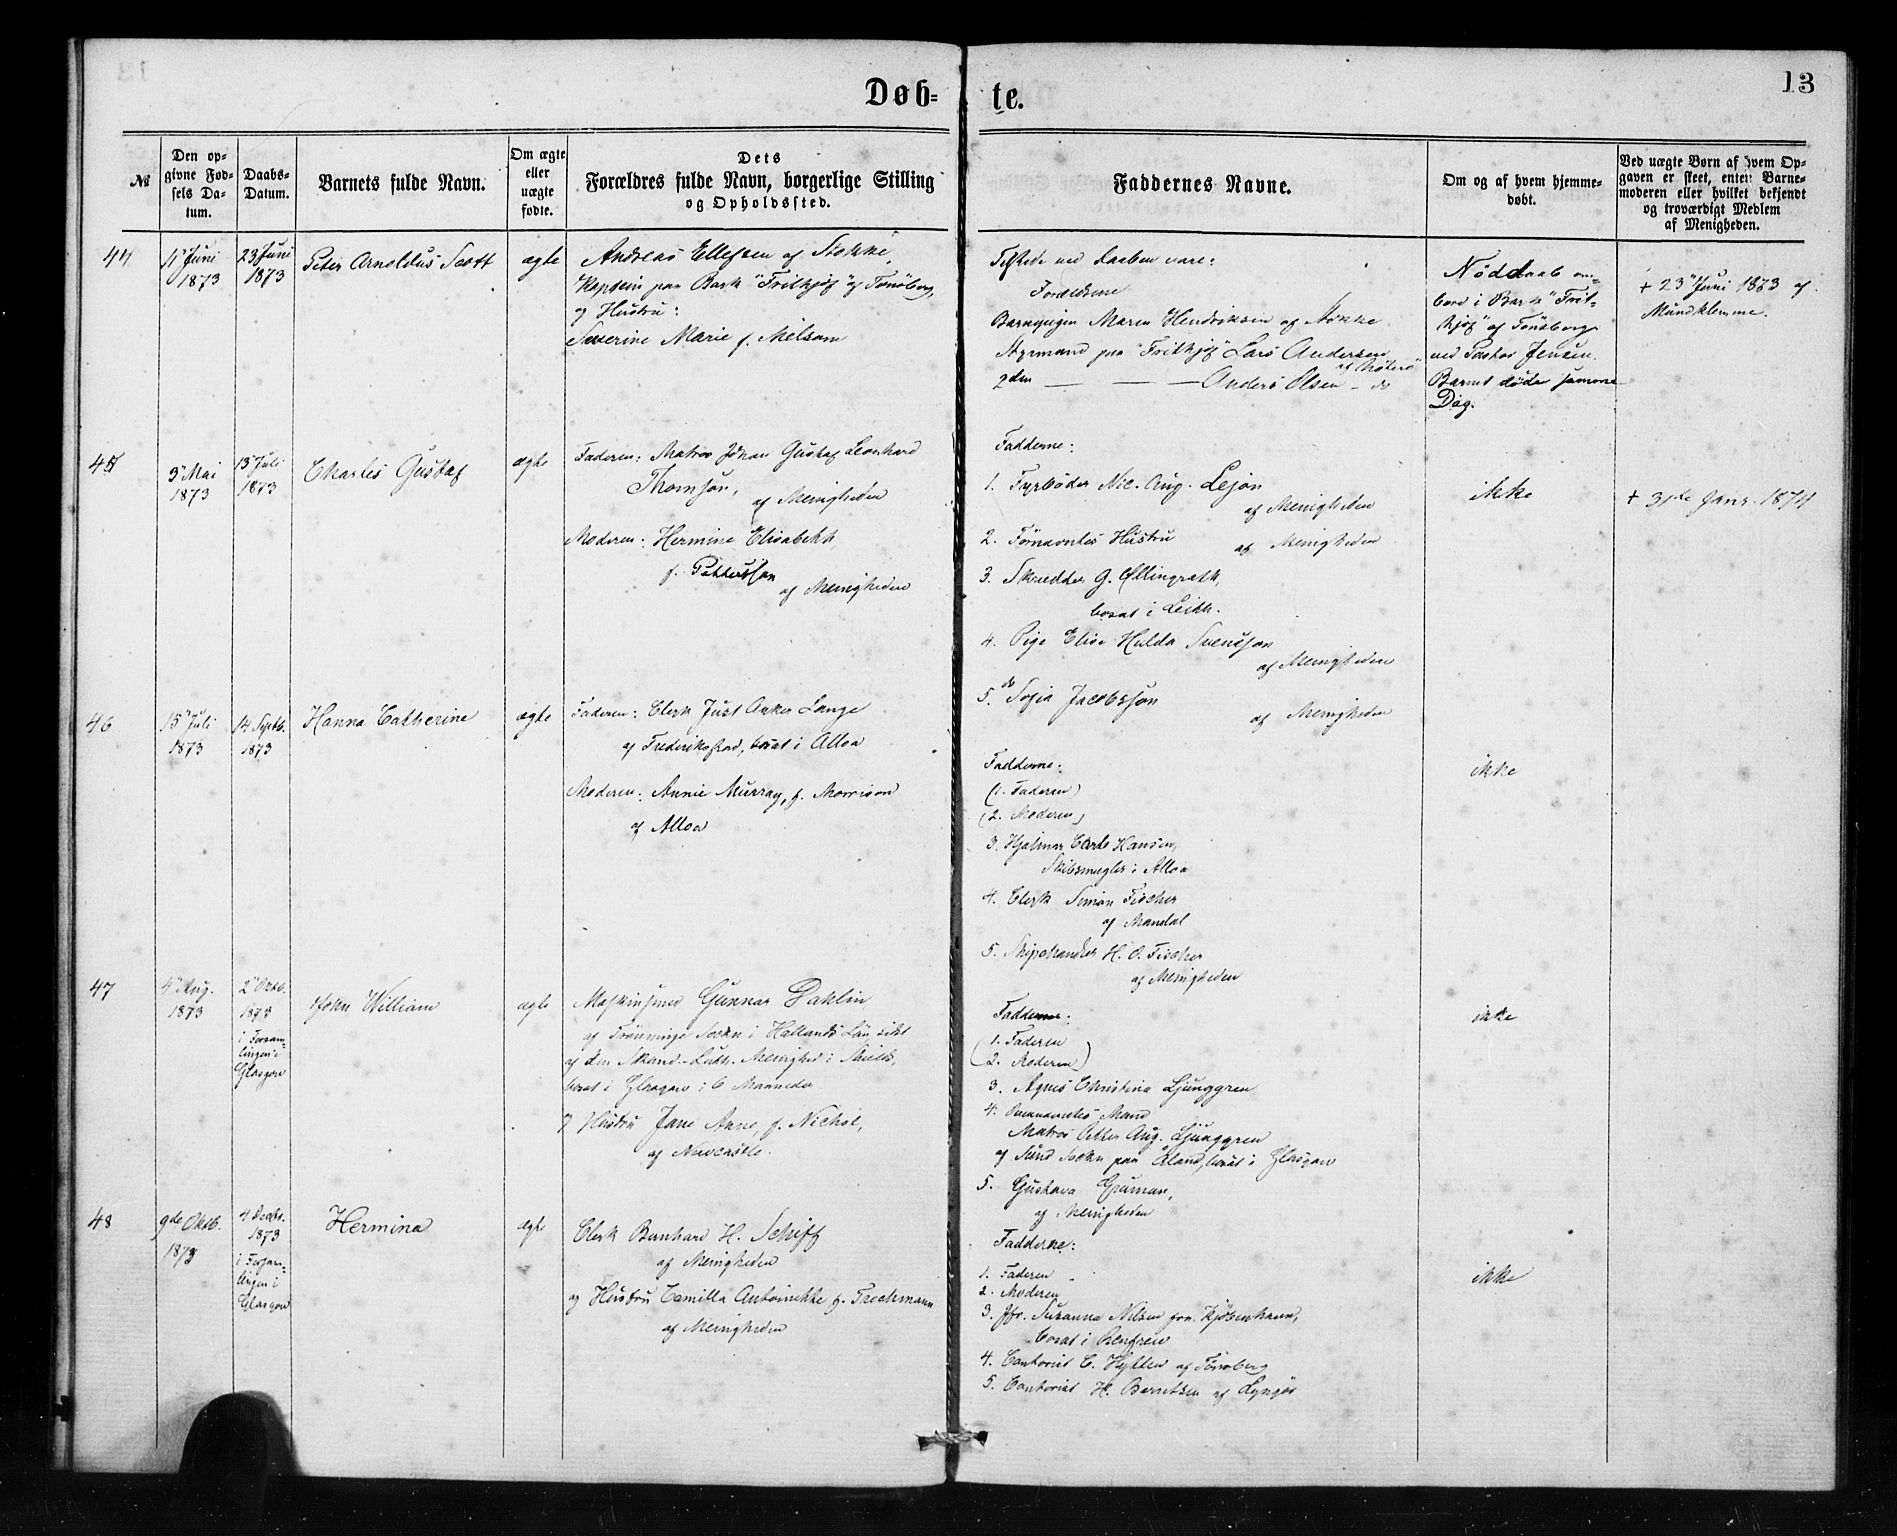 Døb-
te.
13
№
Den op-
givne Fød-
sels Da-
tum.
Daabs-
Datum.
Barnets fulde Navn.
Om ægte
eller
uægte
fødte.
Dets
Forældres fulde Navn, borgerlige Stilling
og Opholdssted.
Faddernes Navne.
Om og af hvem hjemme-
døbt.
Ved uægte Børn af hvem Op-
gaven er skeet, enten Barne-
moderen eller hvilket bekjendt
og troværdigt Medlem
af Menigheden.
44
11" Juni
1873
23 Juni
1873
Peter Arnoldus Scott
ægte
Andreas Ellefsen af Stokke,
Kaptein paa Bark "Frithjof" af Tønsberg,
og Hustru:
Severine Marie f. Melsom
Tilstede ved Daaben vare:
Forældrene
Barnepigen Maren Hendriksen af Stokke
Styrmand paa "Frithjof" Lars Andersen
af Nøterø
2den — — — Anders Olsen - do
Nøddaab om-
bord i Bark "Frit-
hjof" af Tønsberg
ved Pastor Jensen.
Barnet døde samme
Dag.
+ 23" Juni 1873 af
Mundklemme.
45
3" Mai
1873
13" Juli
1873
Charles Gustaf
ægte
Faderen: Matros Johan Gustaf Leonhard
Thomson,
af Menigheden
Moderen: Hermine Elisabeth,
f. Pettersson
af Menigheden
Fadderne:
1. Fyrbøder Nic. Aug. Lejon
af Menigheden
2. Førnævntes Hustru
af Menigheden
3. Skrædder G. Ellingrath,
bosat i Leith.
4. Pige Elise Hulda Svensson
af Menigheden
5. do Sofia Jacobsson
af Menigheden
ikke
+ 31te Janr. 1874
46
15" Juli
1873
14 Septb.
1873
Hanna Catherine
ægte
Faderen: Clerk Just Anker Lange
af Frederikstad, bosat i Alloa
Moderen: Annie Murray, f. Morrison
af Alloa
Fadderne:
(1. Faderen)
(2. Moderen)
3. Hjalmar Hansen,
Skibsmægler i Alloa
4. Clerk Simon Fischer
af Mandal
5. Shipchandler H. O. Fischer
af Menigheden
ikke
47
4" Aug.
1873
2" Oktb.
1873
i Forsam-
lingen i
Glasgow
John William
ægte
Maskinsmed Gunnar Dahlin
af Trönninge Sockn i Hallands Län, sidst
af den Skand.-Luth. Menighed i Shields,
bosat i Glasgow i 6 Maaneder
og Hustru Jane Anne, f. Nichol,
af Newcastle.
Fadderne:
(1. Faderen
2. Moderen)
3. Agnes Christina Ljunggren
4. Ovennævntes Mand
Matros Petter Aug. Ljunggren
af Sund Sockn paa Åland, bosat i Glasgow
5. Gustava Gruman,
af Menigheden
ikke
48
9de Oktb.
1873
4 Decbr.
1873
i Forsam-
lingen i
Glasgow
Hermina
ægte
Clerk Bernhard H. Schiff
af Menigheden
og Hustru Camilla Antoinette f. Trechmann
af Menigheden
Fadderne:
1. Faderen
2. Moderen
3. Jfr. Susanna Nilsen fra Kjøbenhavn,
bosat i Renfrew
4. Contorist C. Hytten af Tønsberg
5. Contorist H. Berntsen af Lyngør
ikke